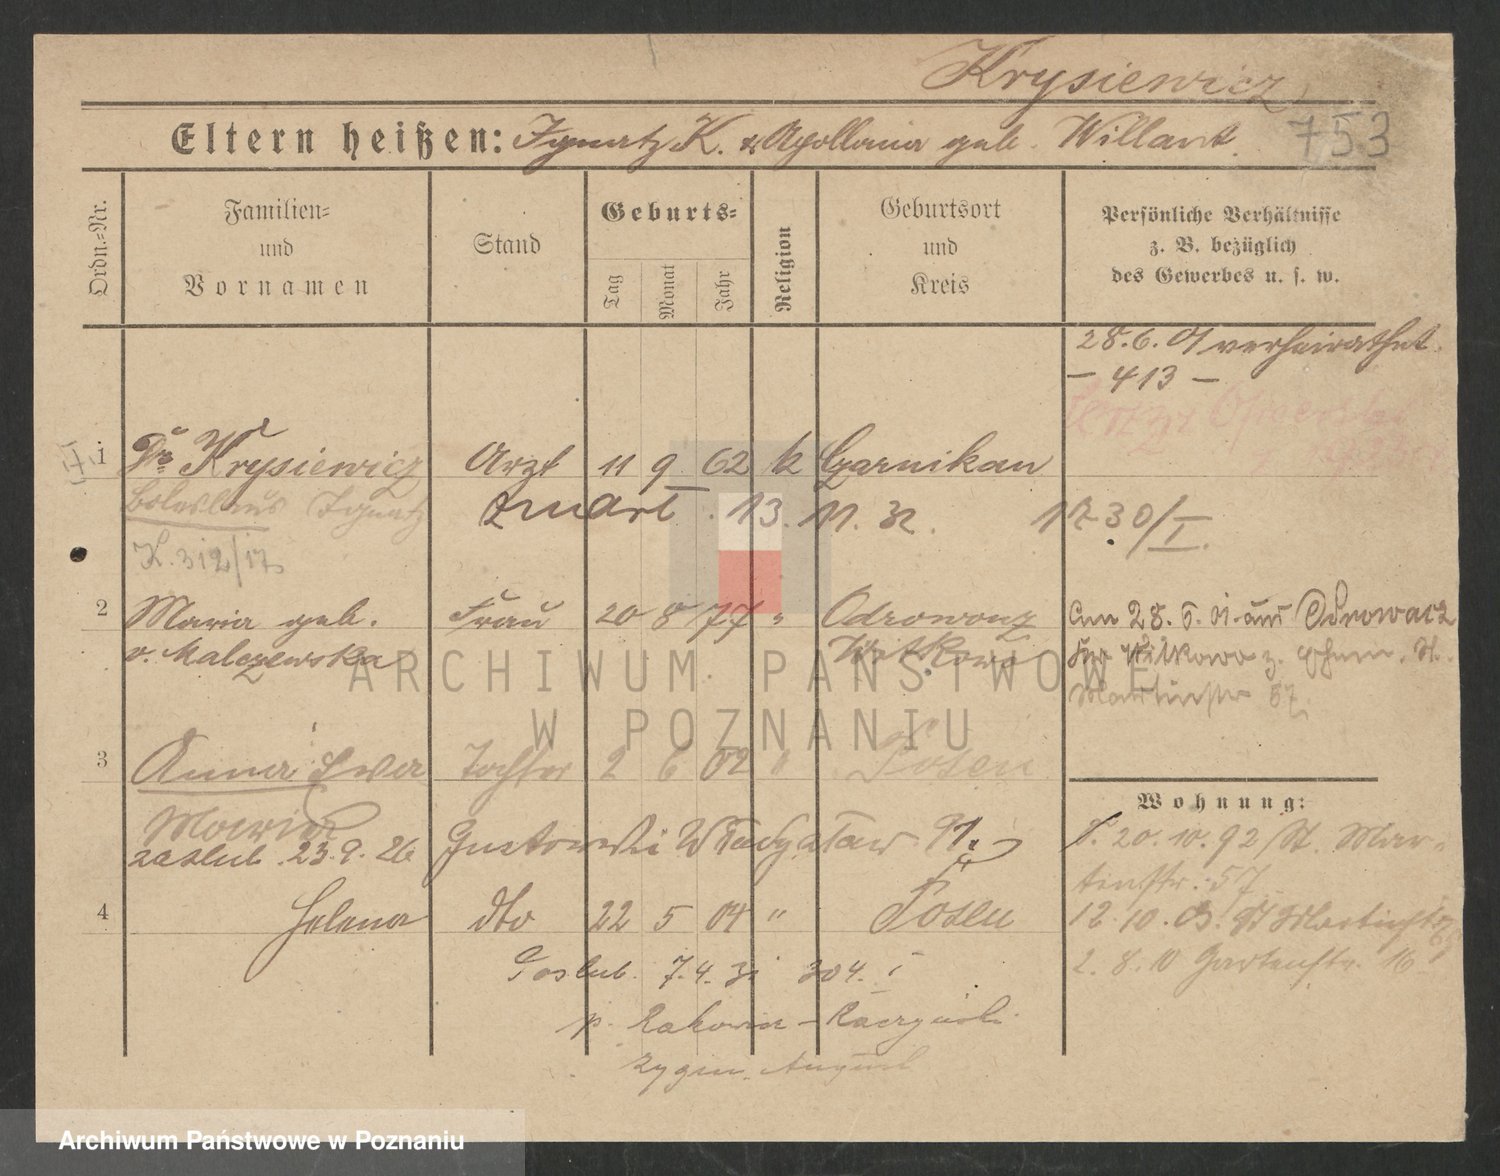 Krysiewicz
Eltern heißen: Ignatz K. & Apollonia geb. Willant.
753
Ordn.=Nr.
Familien=
und
Vornamen
Stand
Geburts=
Tag
Monat
Jahr
Religion
Geburtsort
und
Kreis
Persönliche Verhältnisse
z. B. bezüglich
des Gewerbes u. s. w.
28.6.01 verheirathet.
— 413 —
1 Dr Krysiewicz Arzt 11 9 62 k Czarnikau
Boleslaus Ignatz
zmarł . 13. 11. 32. 1730/I.
K. 312/17
2 Maria geb. Frau 20 8 77 " Odrowonz
v. Malczewska Witkowo
Am 28. 6. 01. aus Odrowacz
Witkowo z. St.
Martinstr 57
3 Anna Ewa Tochter 2 6 02 " Posen
Maria
zaslub. 23.9.26 Gustowski Władysław
4 Helena dto 22 5 04 " Posen
Zaslub. 7.4.31 304. I
p. Rakowicz - Raczyński
Zygm. August
Wohnung:
20.10.92 St. Mar-
tinstr. 57
12.10.03. St Martinstr
2. 8. 10 Gartenstr. 16
ARCHIWUM PAŃSTWOWE
W POZNANIU
Archiwum Państwowe w Poznaniu